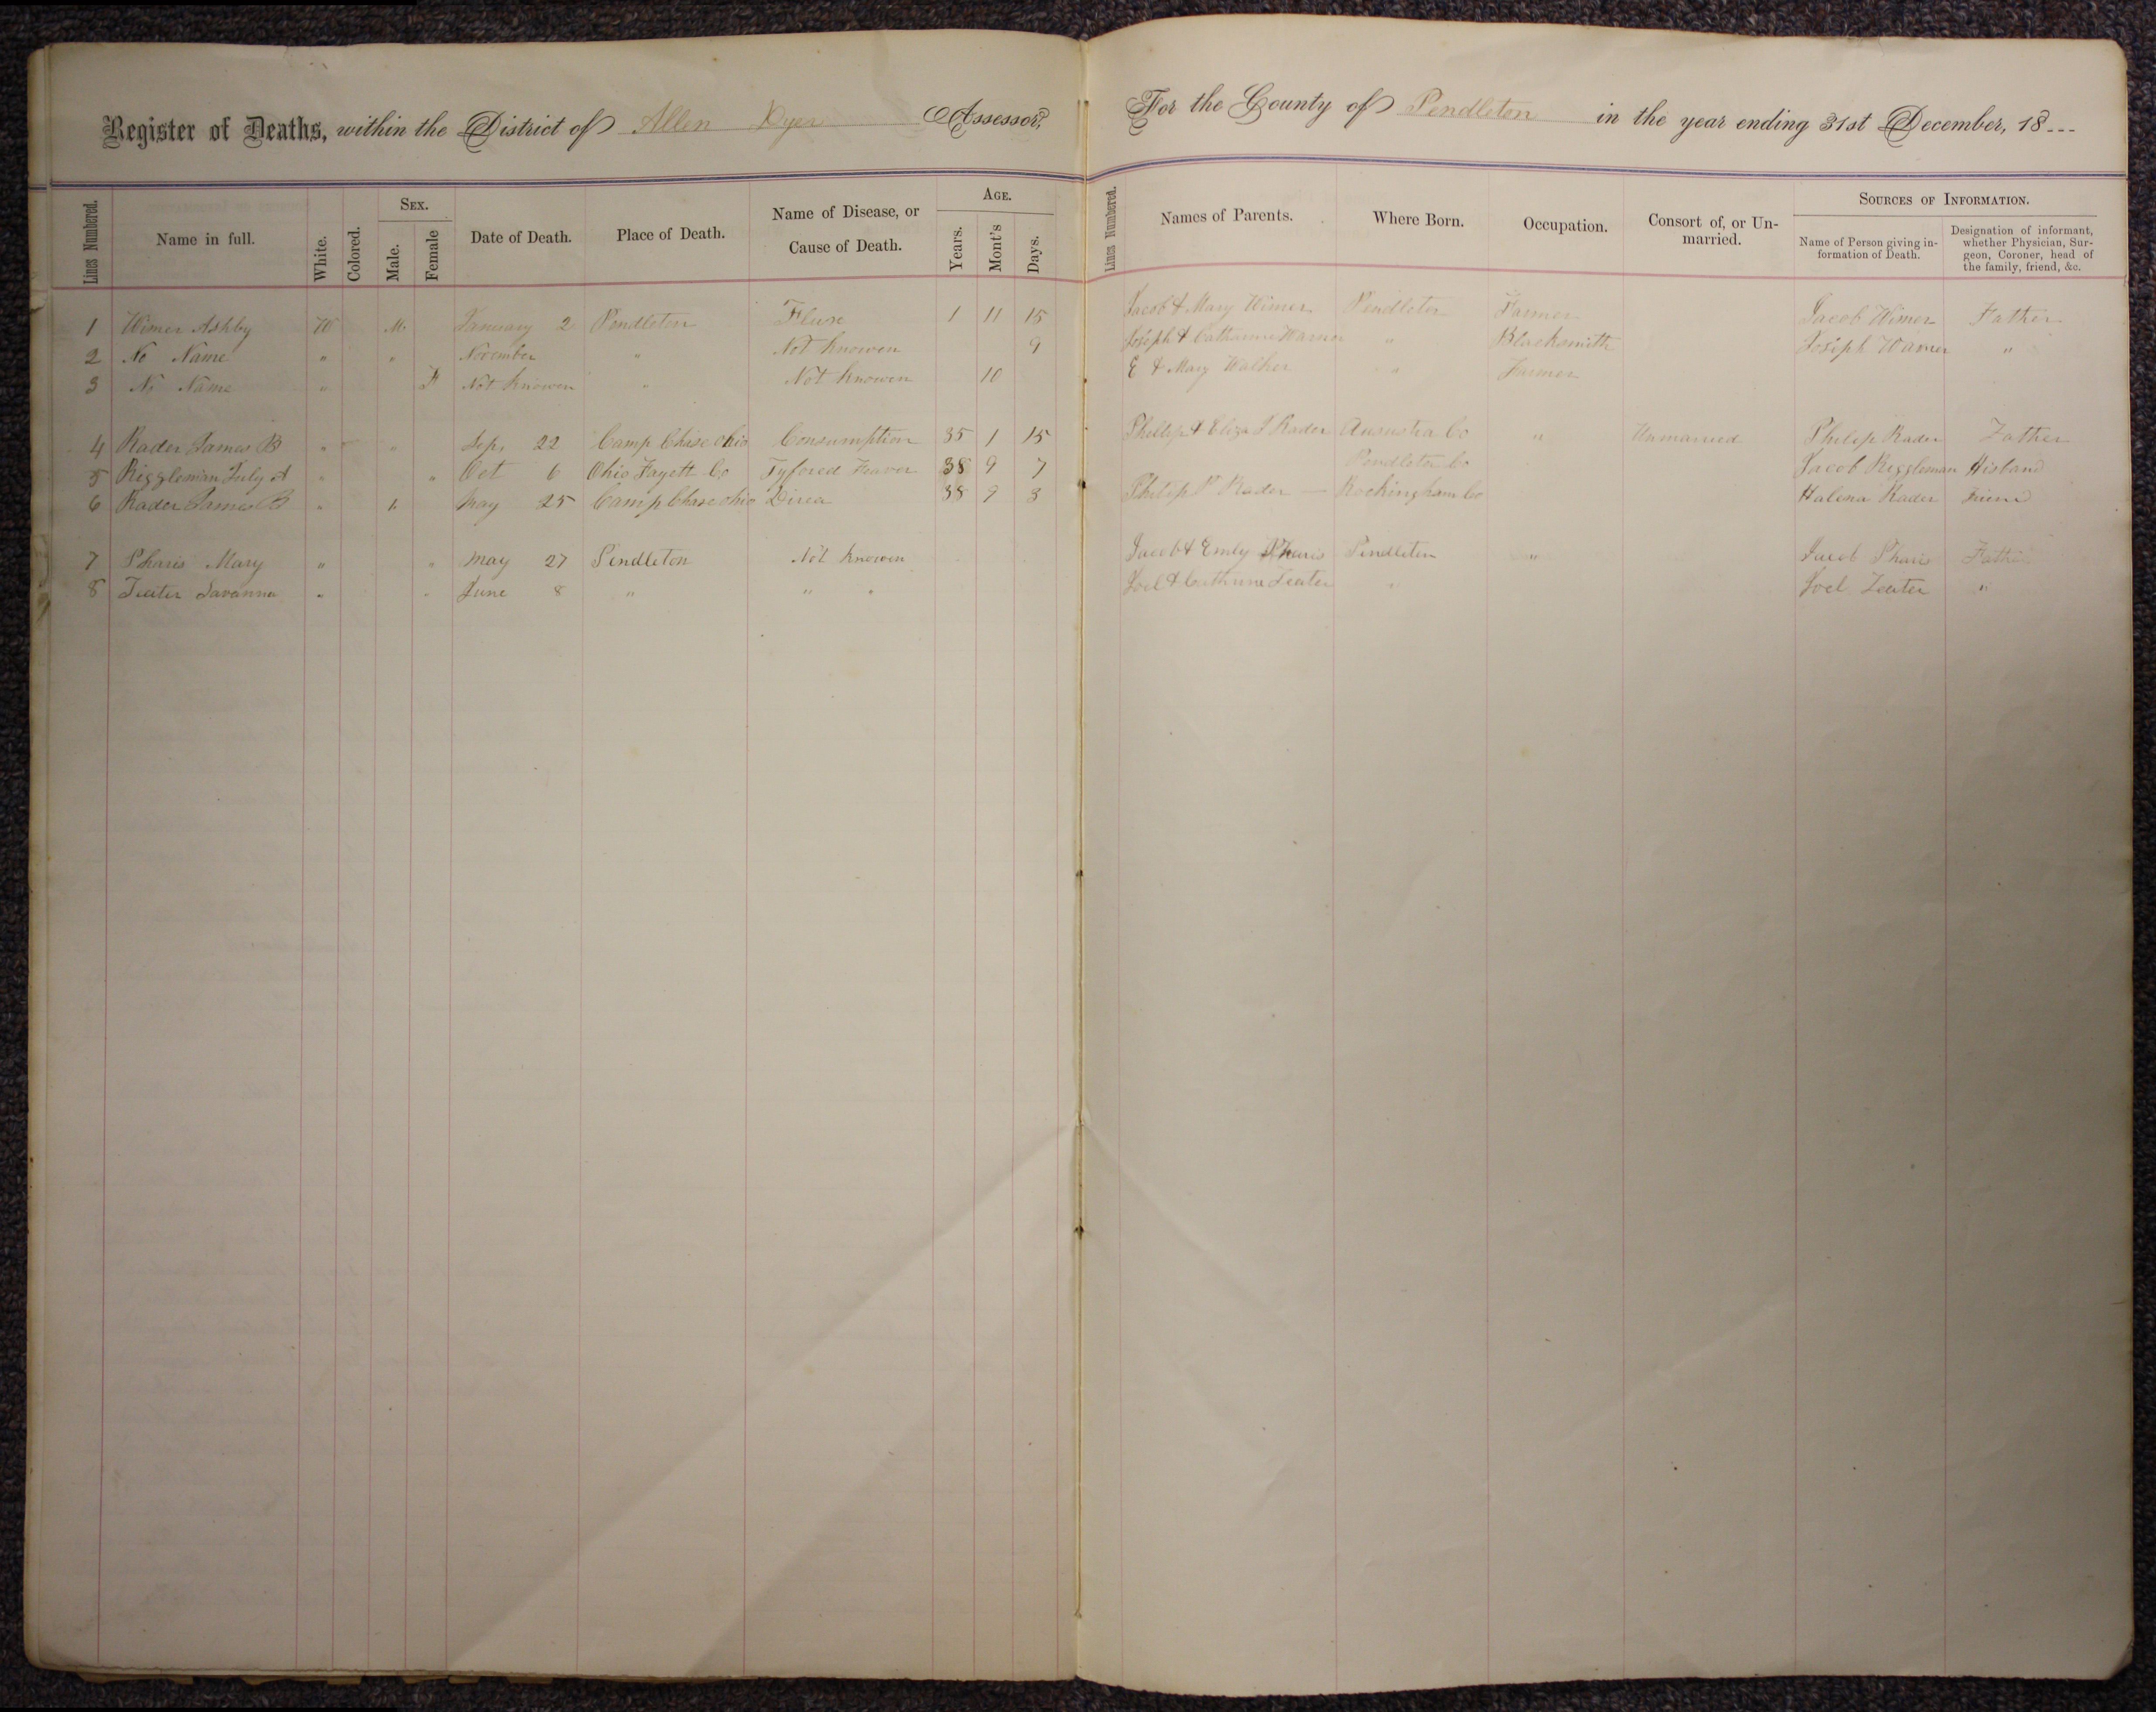 Register of Deaths, within the District of Allen Dyer Assessor,
For the County of Pendleton in the year ending 31st December, 18
Lines Numbered. Name in full. White. Colored. Sex. Male. Female Date of Death. Place of Death. Name of Disease, or Cause of Death. Age. Years. Mont's Days.
Lines Numbered. Names of Parents. Where Born. Occupation. Consort of, or Unmarried. Sources of Information. Name of Person giving information of Death. Designation of informant, whether Physician, Surgeon, Coroner, head of the family, friend, &c.
1 Wimer Ashby W M. January 2 Pendleton Fluse 1 11 15 Jacob & Mary Wimer Pendleton Farmer Jacob Wimer Father
2 No Name " " November " Not Knowen 9 Joseph & Catharine Warner " Blacksmith Joseph Warner "
3 No Name " F Not Knowen " Not Knowen 10 E & Mary Walker " " Farmer
4 Rader James B " " Sep, 22 Camp Chase Ohio Consumption 35 1 15 Phillip & Eliza J Rader Augustia Co " Unmarried Philip Rader Father
5 Riggleman July A " " Oct 6 Ohio Fayett Co Tyfored Feaver 38 9 7 Pendleton Co Jacob Riggleman Husband
6 Rader James B " " May 25 Camp Chase Ohio Direa 38 9 3 Philip P Rader — Rockingham Co Halena Rader Friend
7 Pharis Mary " " May 27 Pendleton Not Knowen Jacob & Emly Pharis Pendleton " Jacob Pharis Father
8 Teater Savanna " " June 8 " " " Joel & Cathrine Teater " Joel Teater "